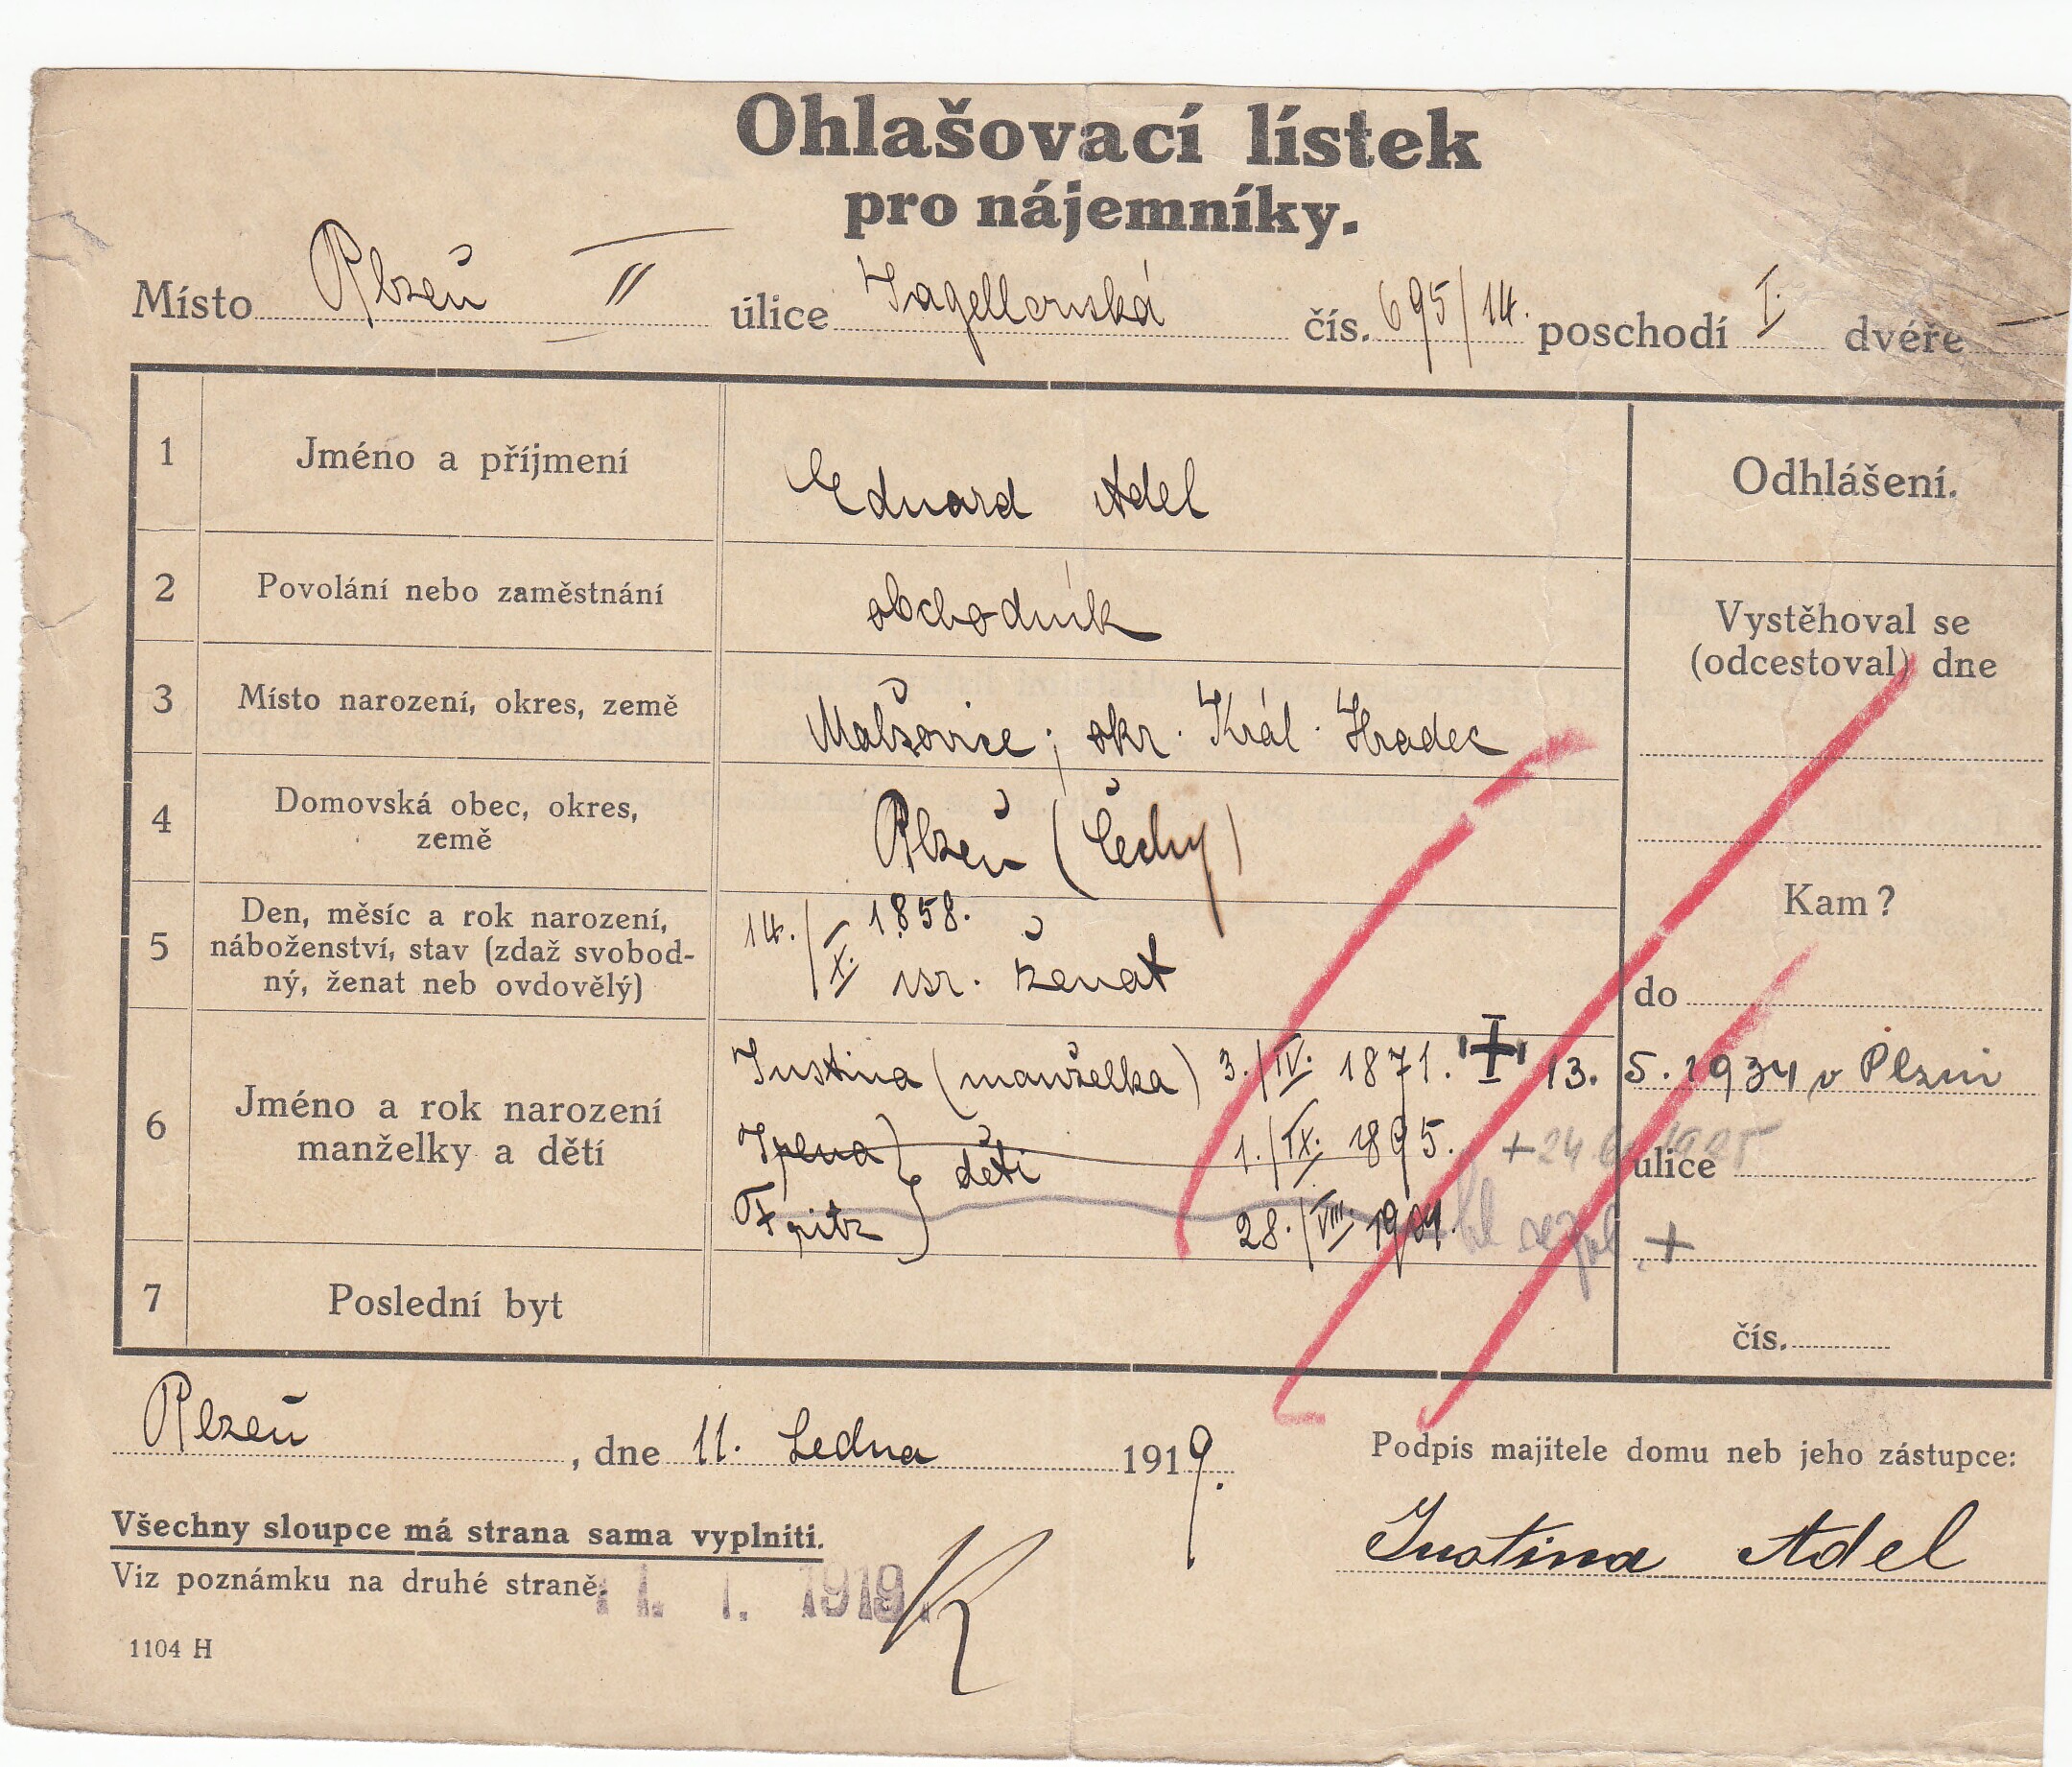 Ohlašovací lístek
pro nájemníky.
Místo Plzeň II úlice Jagellonská čís. 695/14. poschodí I. dvéře —
1 Jméno a příjmení Eduard Adel
Odhlášení.
2 Povolání nebo zaměstnání obchodník
Vystěhoval se
(odcestoval) dne
3 Místo narození, okres, země Malšovice; okr. Král. Hradec
4 Domovská obec, okres,
země
Plzeň (Čechy)
Kam?
5 Den, měsíc a rok narození,
náboženství, stav (zdaž svobod-
ný, ženat neb ovdovělý)
14./X. 1858.
isr. ženat
do
6 Jméno a rok narození
manželky a dětí
Justina (manželka) 3./IV. 1871. 13. 5. 1934 v Plzni
Irena } děti 1./IX. 1895. + 24 6 1925
Fritz 28./VIII. 1901. +
ulice
7 Poslední byt
čís.
Plzeň, dne 11. Ledna 1919.
Podpis majitele domu neb jeho zástupce:
Justina Adel
Všechny sloupce má strana sama vyplniti.
Viz poznámku na druhé straně.
11. 1. 1919.
1104 H